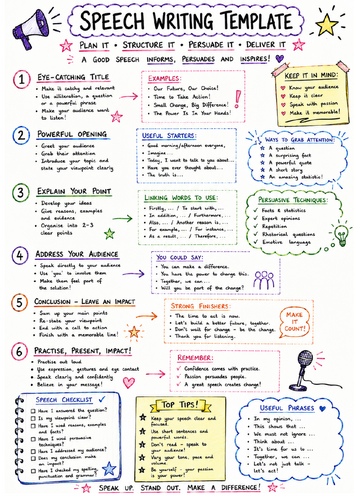 SPEECH WRITING TEMPLATE
PLAN IT • STRUCTURE IT • PERSUADE IT • DELIVER IT
A GOOD SPEECH INFORMS, PERSUADES AND INSPIRES!
1 EYE-CATCHING TITLE
• Make it catchy and relevant
• Use alliteration, a question
or a powerful phrase
• Make your audience want
to listen!
EXAMPLES:
• Our Future, Our Choice!
• Time to Take Action!
• Small Change, Big Difference!
• The Power Is In Your Hands!
KEEP IT IN MIND:
Know your audience
Keep it clear
Speak with passion
Make it memorable!
2 POWERFUL OPENING
• Greet your audience
• Grab their attention
• Introduce your topic and
state your viewpoint clearly
USEFUL STARTERS:
• Good morning/afternoon everyone,
• Imagine...
• Today, I want to talk to you about...
• Have you ever thought about...
• The truth is...
WAYS TO GRAB ATTENTION:
A question
A surprising fact
A powerful quote
A short story
An amazing statistic!
3 EXPLAIN YOUR POINT
• Develop your ideas
• Give reasons, examples
and evidence
• Organise into 2-3
clear points
LINKING WORDS TO USE:
• Firstly, ... / To start with,...
• In addition, ... / Furthermore,...
• Also, ... / Another reason is...
• For example,... / For instance,
• As a result,... / Therefore,...
PERSUASIVE TECHNIQUES:
• Facts & statistics
• Expert opinions
• Repetition
• Rhetorical questions
• Emotive language
4 ADDRESS YOUR AUDIENCE
• Speak directly to your audience
• Use 'you' to involve them
• Make them feel part of
the solution!
YOU COULD SAY:
• You can make a difference.
• You have the power to change this.
• Together, we can...
• Will you be part of the change?
5 CONCLUSION - LEAVE AN IMPACT
• Sum up your main points
• Re-state your viewpoint
• End with a call to action
• Finish with a memorable line!
STRONG FINISHERS:
• The time to act is now.
• Let's build a better future, together.
• Don't wait for change - be the change.
• Thank you for listening.
MAKE
IT
COUNT!
6 PRACTISE, PRESENT, IMPACT!
• Practise out loud
• Use expression, gestures and eye contact
• Speak clearly and confidently
• Believe in your message!
REMEMBER:
Confidence comes with practice.
Passion persuades people.
A great speech creates change!
SPEECH CHECKLIST
Have I answered the question?
Is my viewpoint clear?
Have I used reasons, examples
and facts?
Have I used persuasive
techniques?
Have I addressed my audience?
Does my conclusion make
an impact?
Have I checked my spelling,
punctuation and grammar?
TOP TIPS!
Keep your speech clear and
focused.
Use short sentences and
powerful words.
Don't read - speak to
your audience!
Vary your tone, pace and
volume.
Be yourself - your passion
is your power!
USEFUL PHRASES
• In my opinion,...
• This shows that...
• We must not ignore ...
• Think about...
• It's time for us to...
• Together, we can ...
• Let's not just talk -
let's act!
SPEAK UP. STAND OUT. MAKE A DIFFERENCE!